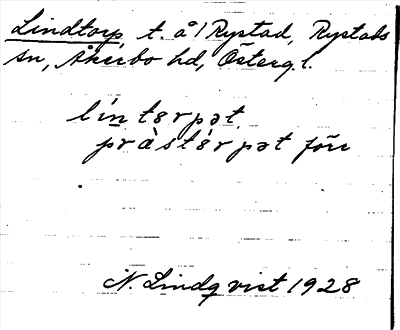 Lindtorp, t. å/ Rystad, Rystads
sn, Åkerbo hd, Österg. l.
líntərpət
prä̀stérpət förr
N. Lindqvist 1928